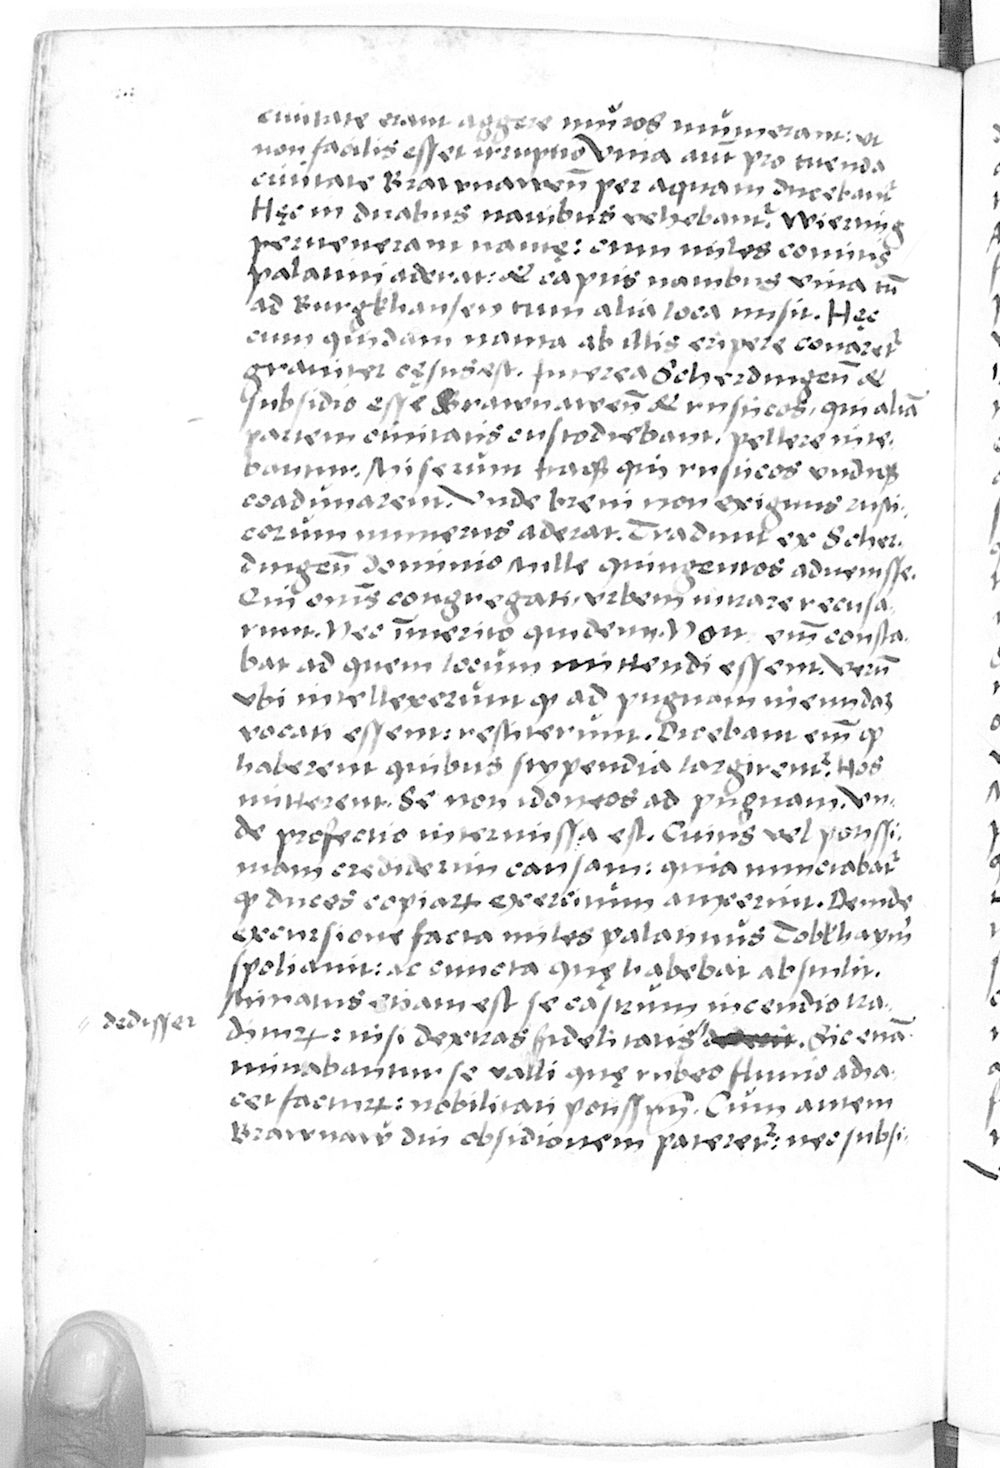 ciuitate erant aggere mũros mũnierant: ut
non facilis esset irruptio Vina aut̃ pro tuenda
ciuitate Brawnawen̄ per aquam ducebant᷑
Hęc in duabus nauibus vehebant᷑. Wierting
peruenerant nautę: cum miles comitis
palatini aderat: & captis nauibus vina tū
ad Burgkhausen tum alia loca misit. Hęc
cum quidam nauta ab illis eripere conaret᷑
grauiter cęsus est. Interea Scherdingen̄ &
subsidio esse Brawnawen̄ & rusticos, qui aliā
partem ciuitatis custodiebant, pellere nite,
bantur. Miserunt itaqꝫ qui rusticos vndiqꝫ
coadunarent. Vnde breui non exiguus rusti,
corum numerus aderat. Tradunt ex Scher,
dingen̄ dominio Mille quingentos aduenisse.
Qui om̄s congregati, vrbem intrare recusa,
runt. Nec īmerito quidem. Non em̄ consta,
bat ad quem locum mittendi essent. Verū
vbi intellexerunt ꝙ ad pugnam ineundaꝫ
vocati essent: restiterunt. Dicebant em̄ ꝙ
haberent quibus stypendia largirent᷑. Hos
mitterent. Se non idoneos ad pugnam. Vn,
de profectio intermissa est. Cuius vel potissi,
mam crediderim causam: quia nunciabat᷑
ꝙ duces copiaꝝ exercitum auxerint. Deinde
excursione facta miles palatinus Tobkhaym̄
spoliauit: ac cuncta quę habebat abstulit.
Minatus etiam est se castrum incendio tra,
dituꝝ: nisi dextras fidelitatis . Sic etiā
dedisset
minabantur se valli quę rubeo fluuio adia,
cet factuꝝ: nobilitati potissimū. Cum autem
Brawnaw diu obsidionem pateret᷑: nec subsi,